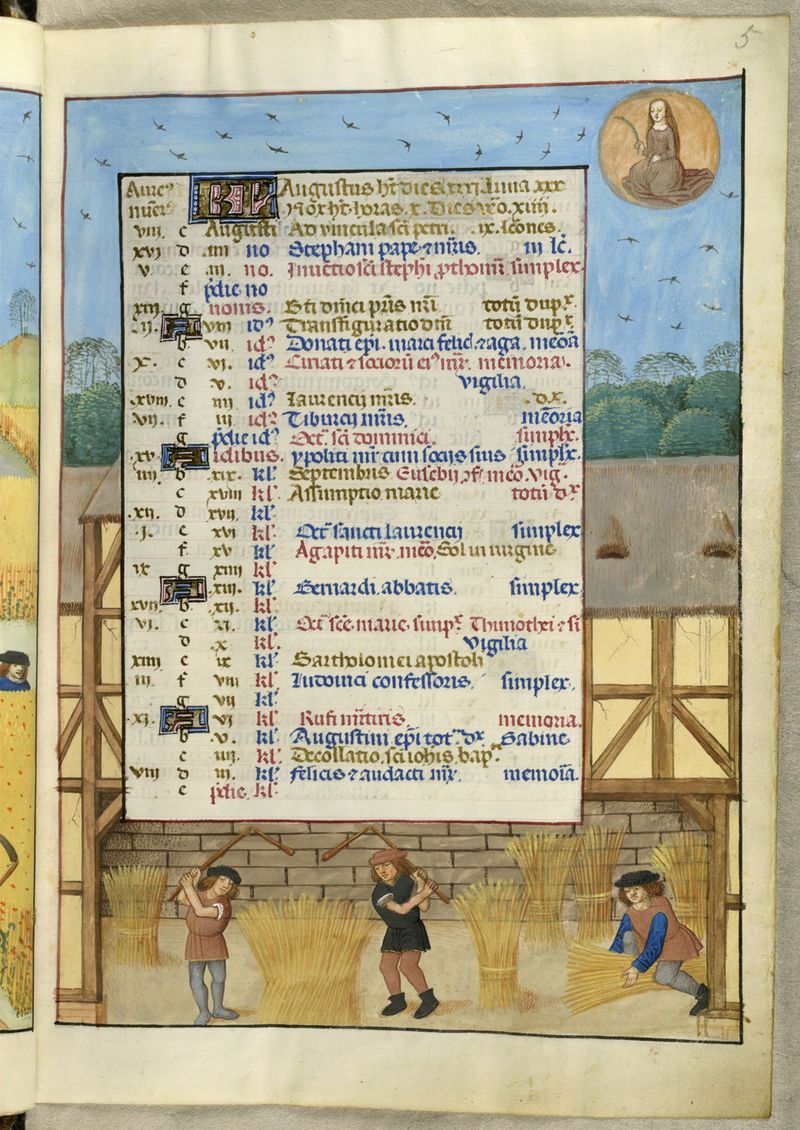 5
Aure⁹ KL Augustus ht dies xxxi. Luna xxx
numer⁹ Nox ht horas x. Dies vero xiiii.
viii c Augusti Ad vincula sci petri. ix. lcones.
xvi d iiii no Stephani pape ⁊ mris. iii lc.
v. e iii. no. Inuentio sci stephi prothomr. simplex
f pdie no
xiii g nonis. Bti dnici pris nri totu dupx.
ii. viii id⁹ Transfiguratio dni totu dupx.
b vii. id⁹ Donati epi. marci felic ⁊ aga. meoa
x. c vi. id⁹ Ciriaci ⁊ socioru ei⁹ mr. memoria.
d v. id⁹ vigilia.
xviii. e iiii id⁹ Laurencij mris. .dx.
vii. f iii id⁹ Tiburcij mris. memoria
g pdie id⁹ Oct. sci dominici. simplx.
xv idibus. ypoliti mr cum socijs suis simplx.
iiii b xix. kl⁹ Septembris Eusebij cf. meo. Vig.
c xviii kl⁹ Assumptio marie totu dx
xii. d xvii. kl⁹
.i. e xvi kl⁹ Oct sancti laurencij simplex
f xv kl⁹ Agapiti mr. meo. Sol in virgine
ix g xiiii kl⁹
xiii. kl⁹ Bernardi. abbatis. simplex
xvii b xii. kl⁹
vi. c xi. kl⁹ Oct sce. marie. simpx Thimothei ⁊ si
d x kl⁹ Vigilia
xiiii e ix kl⁹ Bartholomei apostoli
iii f viii kl⁹ Ludouici confessoris. simplex.
g vii kl⁹
xi. vi kl⁹ Rufi mrtiris. memoria.
b v. kl⁹ Augustini epi tot. dx Sabine
c iiii. kl⁹ Decollatio. sci iohis. bap.
viii d iii. kl⁹ felicis ⁊ audacti mr. memoia.
e pdie. kl⁹